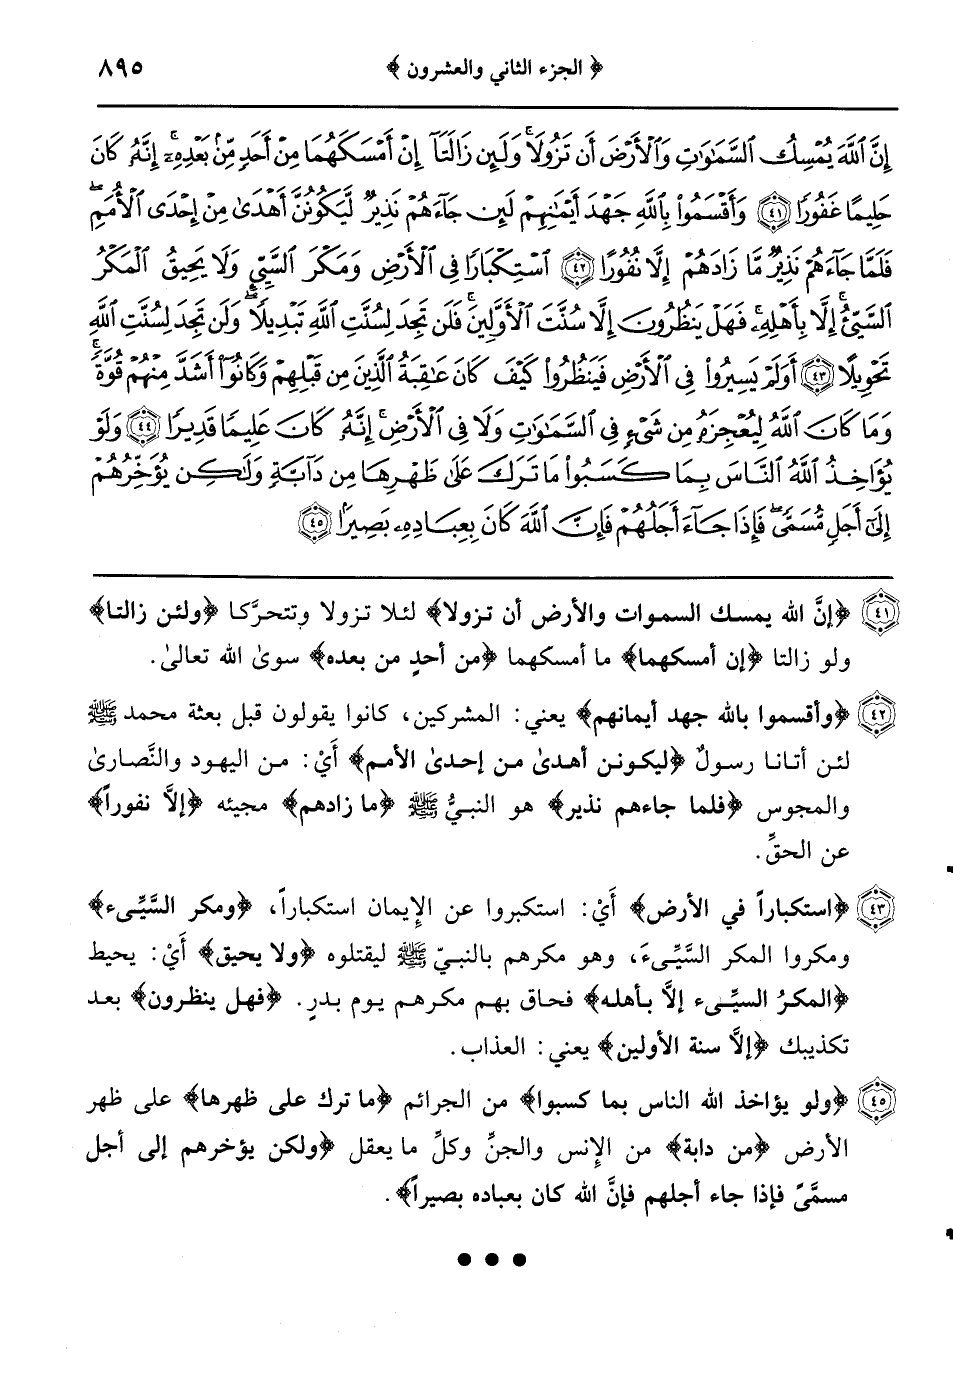 ﴿ الجزء الثاني والعشرون ﴾ ٨٩٥
إِنَّ ٱللَّهَ يُمْسِكُ ٱلسَّمَٰوَٰتِ وَٱلْأَرْضَ أَن تَزُولَا ۚ وَلَئِن زَالَتَآ إِنْ أَمْسَكَهُمَا مِنْ أَحَدٍ مِّنۢ بَعْدِهِۦٓ ۚ إِنَّهُۥ كَانَ
حَلِيمًا غَفُورًا ٤١ وَأَقْسَمُوا۟ بِٱللَّهِ جَهْدَ أَيْمَٰنِهِمْ لَئِن جَآءَهُمْ نَذِيرٌ لَّيَكُونُنَّ أَهْدَىٰ مِنْ إِحْدَى ٱلْأُمَمِ ۖ
فَلَمَّا جَآءَهُمْ نَذِيرٌ مَّا زَادَهُمْ إِلَّا نُفُورًا ٤٢ ٱسْتِكْبَارًا فِى ٱلْأَرْضِ وَمَكْرَ ٱلسَّيِّئِ ۚ وَلَا يَحِيقُ ٱلْمَكْرُ
ٱلسَّيِّئُ إِلَّا بِأَهْلِهِۦ ۚ فَهَلْ يَنظُرُونَ إِلَّا سُنَّتَ ٱلْأَوَّلِينَ ۚ فَلَن تَجِدَ لِسُنَّتِ ٱللَّهِ تَبْدِيلًا ۖ وَلَن تَجِدَ لِسُنَّتِ ٱللَّهِ
تَحْوِيلًا ٤٣ أَوَلَمْ يَسِيرُوا۟ فِى ٱلْأَرْضِ فَيَنظُرُوا۟ كَيْفَ كَانَ عَٰقِبَةُ ٱلَّذِينَ مِن قَبْلِهِمْ وَكَانُوٓا۟ أَشَدَّ مِنْهُمْ قُوَّةً ۚ
وَمَا كَانَ ٱللَّهُ لِيُعْجِزَهُۥ مِن شَىْءٍ فِى ٱلسَّمَٰوَٰتِ وَلَا فِى ٱلْأَرْضِ ۚ إِنَّهُۥ كَانَ عَلِيمًا قَدِيرًا ٤٤ وَلَوْ
يُؤَاخِذُ ٱللَّهُ ٱلنَّاسَ بِمَا كَسَبُوا۟ مَا تَرَكَ عَلَىٰ ظَهْرِهَا مِن دَآبَّةٍ وَلَٰكِن يُؤَخِّرُهُمْ
إِلَىٰٓ أَجَلٍ مُّسَمًّى ۖ فَإِذَا جَآءَ أَجَلُهُمْ فَإِنَّ ٱللَّهَ كَانَ بِعِبَادِهِۦ بَصِيرًۢا ٤٥
٤١ ﴿إنَّ الله يمسك السموات والأرض أن تزولا﴾ لئلا تزولا وتتحرَّكا ﴿ولئن زالتا﴾
ولو زالتا ﴿إن أمسكهما﴾ ما أمسكهما ﴿من أحدٍ من بعده﴾ سوىٰ الله تعالىٰ.
٤٢ ﴿وأقسموا بالله جهد أيمانهم﴾ يعني: المشركين، كانوا يقولون قبل بعثة محمد ﷺ
لئن أتانا رسولٌ ﴿ليكونن أهدىٰ من إحدىٰ الأمم﴾ أَيْ: من اليهود والنَّصارىٰ
والمجوس ﴿فلما جاءهم نذير﴾ هو النبيُّ ﷺ ﴿ما زادهم﴾ مجيئه ﴿إلاَّ نفوراً﴾
عن الحقِّ.
٤٣ ﴿استكباراً في الأرض﴾ أَيْ: استكبروا عن الإِيمان استكباراً، ﴿ومكر السَّيِّىء﴾
ومكروا المكر السَّيِّىءَ، وهو مكرهم بالنبيّ ﷺ ليقتلوه ﴿ولا يحيق﴾ أَيْ: يحيط
﴿المكرُ السيِّىء إلاَّ بأهله﴾ فحاق بهم مكرهم يوم بدرٍ. ﴿فهل ينظرون﴾ بعد
تكذيبك ﴿إلاَّ سنة الأولين﴾ يعني: العذاب.
٤٥ ﴿ولو يؤاخذ الله الناس بما كسبوا﴾ من الجرائم ﴿ما ترك على ظهرها﴾ على ظهر
الأرض ﴿من دابة﴾ من الإِنس والجنِّ وكلِّ ما يعقل ﴿ولكن يؤخرهم إلى أجل
مسمَّىً فإذا جاء أجلهم فإنَّ الله كان بعباده بصيراً﴾.